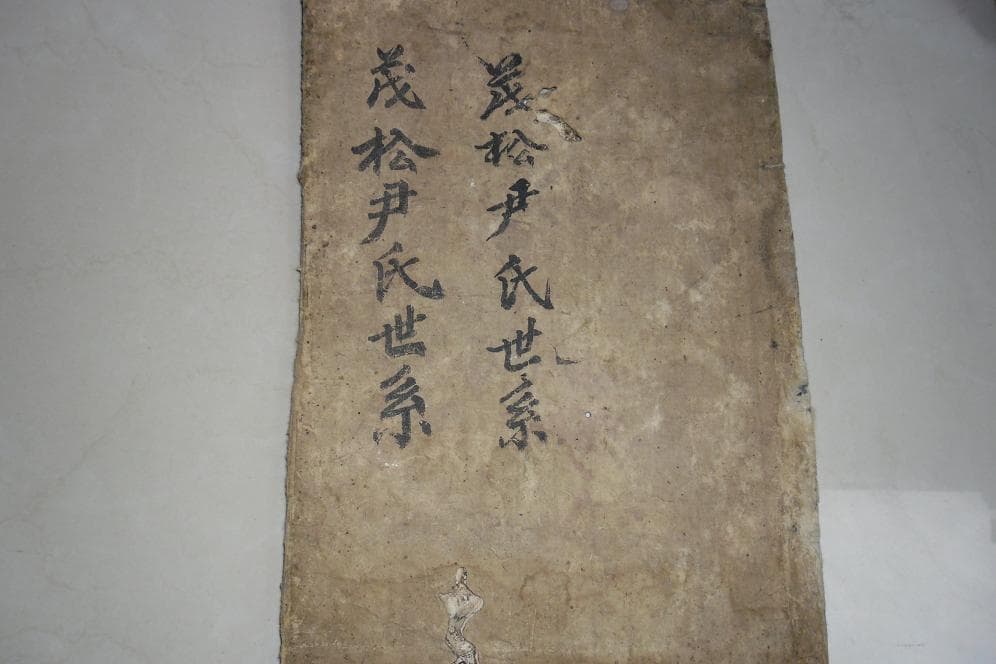 茂松尹氏世系
茂松尹氏世系